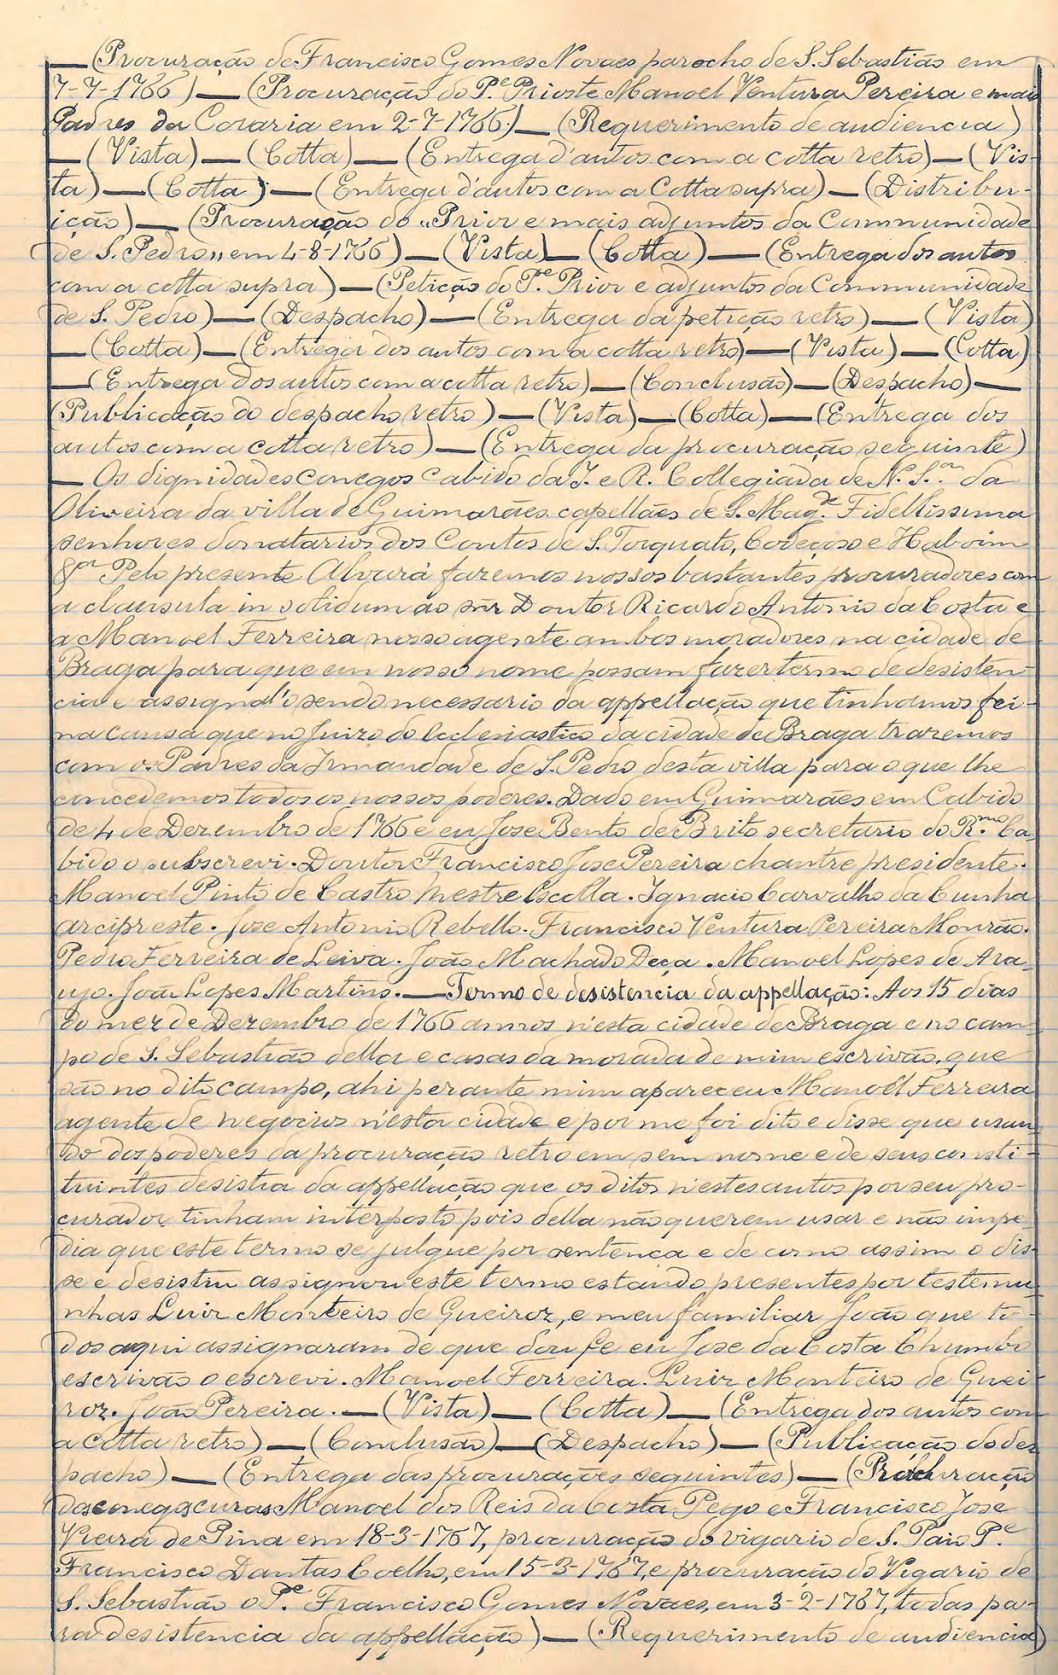 — (Procuração de Francisco Gomes Novaes parocho de S. Sebastião em
7-7-1766) — (Procuração do P.e Prioste Manoel Ventura Pereira e mais
Padres da Coraria em 2-7-1766.) — (Requerimento de audiencia)
— (Vista) — (Cotta) — (Entrega d'autos com a cotta retro) — (Vis-
ta) — (Cotta) — (Entrega d'autos com a Cotta supra) — (Distribu-
ição) — (Procuração do "Prior e mais adjuntos da Communidade
de S. Pedro" em 4-8-1766) — (Vista) — (Cotta) — (Entrega dos autos
com a cotta supra) — (Petição do P.e Prior e adjuntos da Communidade
de S. Pedro) — (Despacho) — (Entrega da petição retro) — (Vista)
— (Cotta) — (Entrega dos autos com a cotta retro) — (Vista) — (Cotta)
— (Entrega dos autos com a cotta retro) — (Conclusão) — (Despacho) —
(Publicação do despacho retro) — (Vista) — (Cotta) — (Entrega dos
autos com a cotta retro) — (Entrega da procuração seguinte)
— Os dignidades conegos cabido da I. e R. Collegiada de N. S.ra da
Oliveira da villa de Guimarães capellães de S. Mag.e Fidellissima
senhores donatarios dos Coutos de S. Torquato, Codeçoso e Haboim
&.a Pelo presente Alvará fazemos nossos bastantes procuradores com
a clausula in solidum ao snr Doutor Ricardo Antonio da Costa e
a Manoel Ferreira nosso agente ambos moradores na cidade de
Braga para que em nosso nome possam fazer termo de desisten
cia e assignal'o sendo necessario da appellação que tinhamos fei-
na causa que no Juizo do Ecclesiastico da cidade de Braga trazemos
com os Padres da Irmandade de S. Pedro desta villa para o que lhe
concedemos todos os nossos poderes. Dado em Guimarães em Cabido
de 4 de Dezembro de 1766 e eu Jose Bento de Brito secretario do R.mo Ca-
bido o subscrevi. Doutor Francisco Jose Pereira chantre presidente.
Manoel Pinto de Castro Mestre Escolla. Ignacio Carvalho da Cunha
arcipreste. Jose Antonio Rebello. Francisco Ventura Pereira Mourão.
Pedro Ferreira de Leiva. João Machado Deça. Manoel Lopes de Ara-
ujo. João Lopes Martins. — Termo de desistencia da appellação: Aos 15 dias
do mez de Dezembro de 1766 annos n'esta cidade de Braga e no cam-
po de S. Sebastião della e casas da morada de mim escrivão, que
são no dito campo, ahi perante mim apareceu Manoel Ferreira
agente de negocios n'esta cidade e por me foi dito e disse que usan
do dos poderes da procuração retro em sem nome e de seus consti-
tuintes desistia da appellação que os ditos n'estes autos por seu pro-
curador tinham interposto pois della não querem usar e não impe-
dia que este termo se julgue por sentença e de como assim o dis-
se e desistiu assignou este termo estando presentes por testemu
nhas Luiz Monteiro de Queiroz, e meu familiar João que to-
dos aqui assignaram de que dou fe eu Jose da Costa Chumbo
escrivão o escrevi. Manoel Ferreira. Luiz Monteiro de Quei-
roz. João Pereira. — (Vista) — (Cotta) — (Entrega dos autos com
a cotta retro) — (Conclusão) — (Despacho) — (Publicação do des
pacho) — (Entrega das procurações seguintes) — (Procuração
dos conegos curas Manoel dos Reis da Costa Pego e Francisco Jose
Vieira de Pina em 18-3-1767, procuração do vigario de S. Paio P.e
Francisco Dantas Coelho, em 15-3-1767, e procuração do Vigario de
S. Sebastião o P.e Francisco Gomes Novaes, em 3-2-1767, todas pa-
ra desistencia da appellação) — (Requerimento de audiencia)